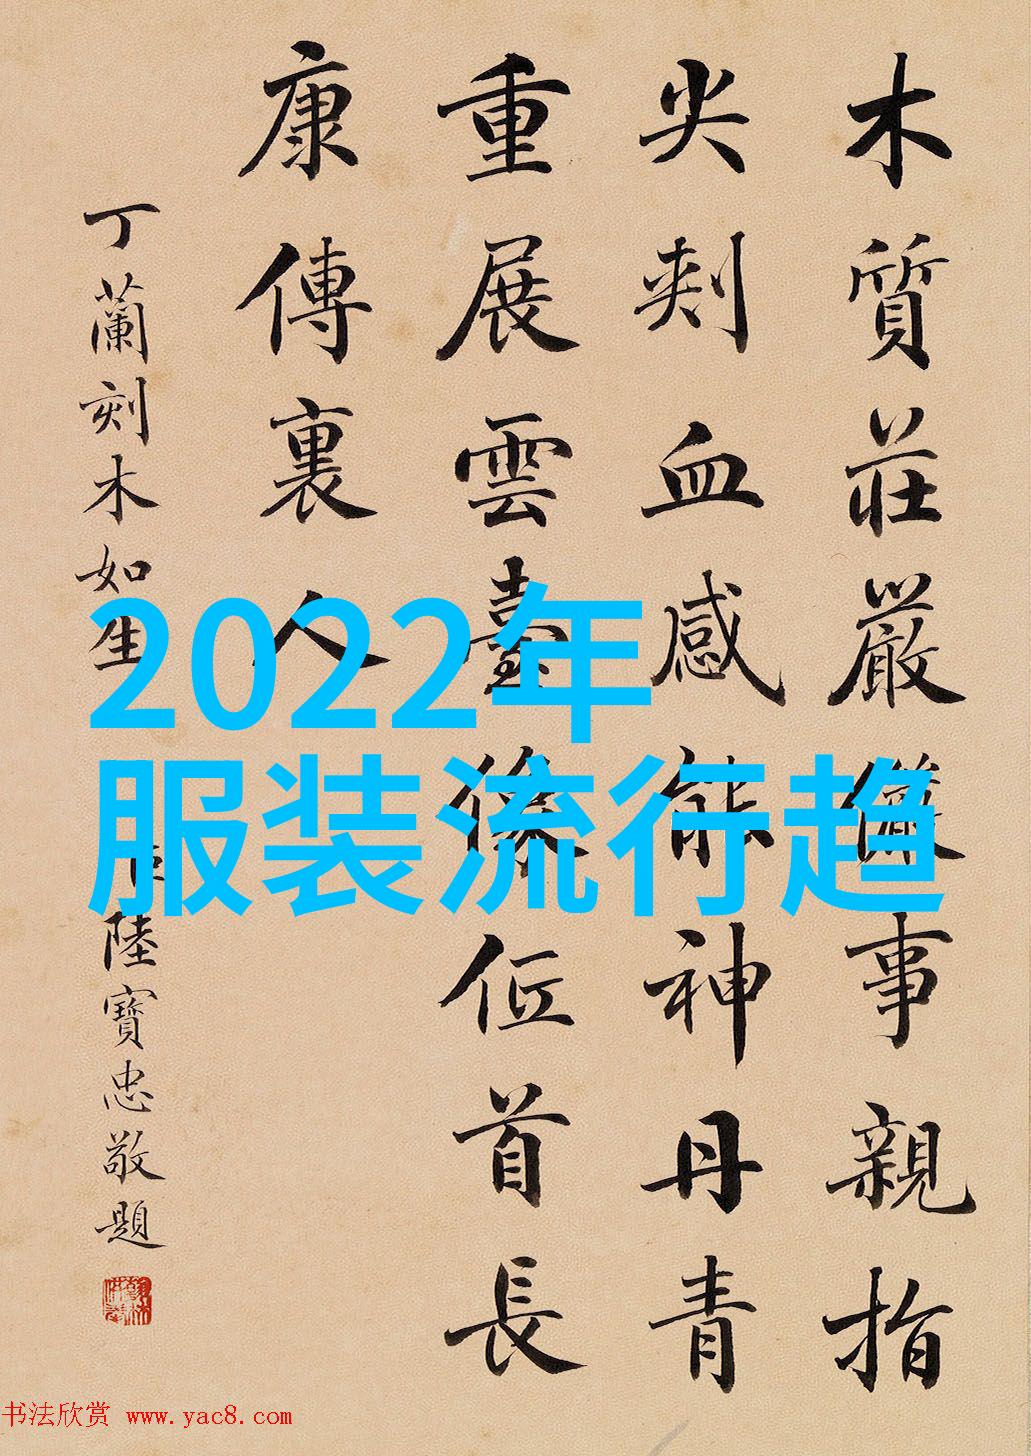 木質莊嚴儼事親指
尖刾血感能神丹青
重展雲臺像位首長
康傳裏人
丁蘭刻木如生
臣陸寶忠敬題
2022年
服装流行趋
书法欣赏 www.yac8.com